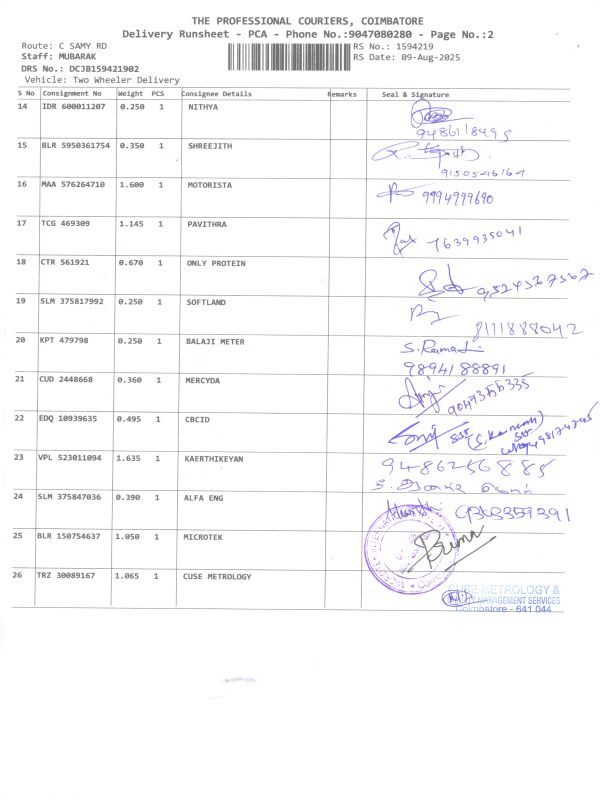 THE PROFESSIONAL COURIERS, COIMBATORE
Delivery Runsheet - PCA - Phone No.:9047080280 - Page No.:2
Route: C SAMY RD
RS No.: 1594219
Staff: MUBARAK
RS Date: 09-Aug-2025
DRS No.: DCJB159421902
Vehicle: Two Wheeler Delivery
S No Consignment No Weight PCS Consignee Details Remarks Seal & Signature
14 IDR 600011207 0.250 1 NITHYA
9486118495
15 BLR 5950361754 0.350 1 SHREEJITH
9150546164
16 MAA 576264710 1.600 1 MOTORISTA
9994999690
17 TCG 469309 1.145 1 PAVITHRA
7639935041
18 CTR 561921 0.670 1 ONLY PROTEIN
9524567567
19 SLM 375817992 0.250 1 SOFTLAND
8111888042
20 KPT 479798 0.250 1 BALAJI METER
9894188891
21 CUD 2448668 0.360 1 MERCYDA
9047356335
22 EDQ 10939635 0.495 1 CBCID
23 VPL 523011094 1.635 1 KAERTHIKEYAN
9486256885
24 SLM 375847036 0.390 1 ALFA ENG
9363359391
25 BLR 150754637 1.050 1 MICROTEK
26 TRZ 30089167 1.065 1 CUSE METROLOGY
CUSE METROLOGY &
MANAGEMENT SERVICES
Coimbatore - 641 044